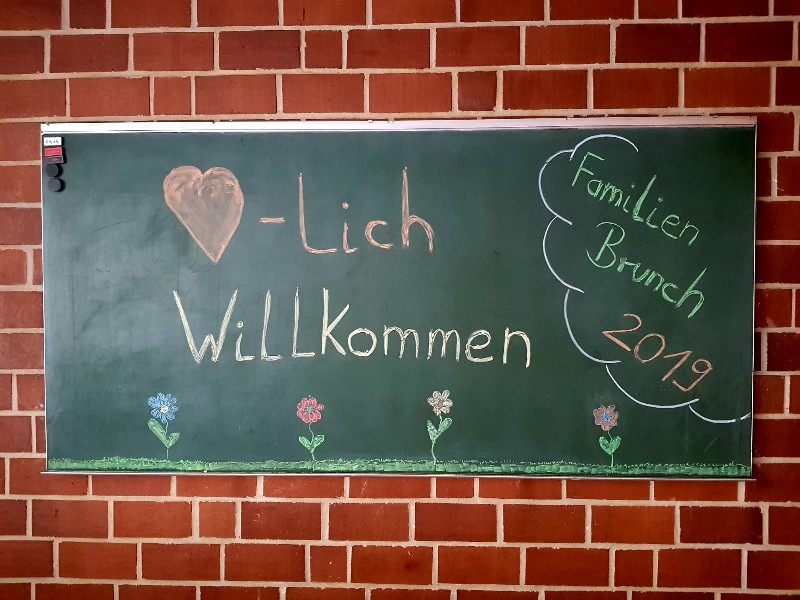 -Lich
Willkommen
Familien
Brunch
2019